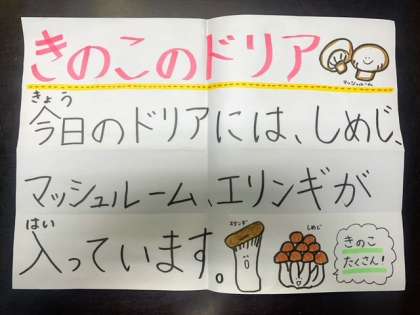 きのこのドリア
マッシュルーム
きょう
今日のドリアには、しめじ、
マッシュルーム、エリンギが
はい
入っています。
エリンギ
しめじ
きのこ
たくさん!